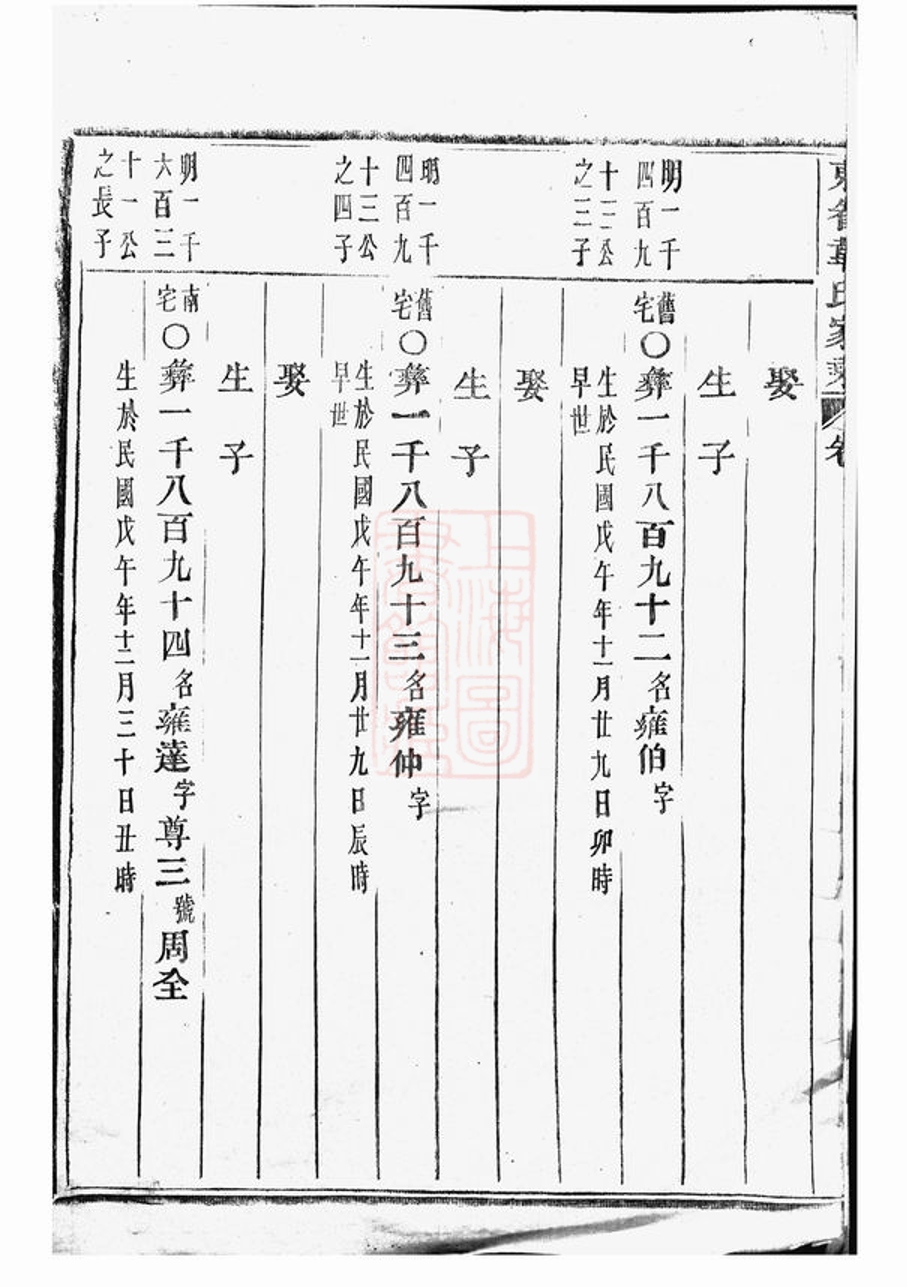 氏家乘
卷
娶
生子
明一千
四百九
十三公
之三子
舊宅〇彝一千八百九十二名雍伯字
生於民國戊午年十一月廿九日卯時
早世
娶
生子
明一千
四百九
十三公
之四子
舊宅〇彝一千八百九十三名雍仲字
生於民國戊午年十一月廿九日辰時
早世
娶
生子
明一千
六百三
十一公
之長子
南宅〇彝一千八百九十四名雍達字尊三號周全
生於民國戊午年十二月三十日丑時
上海圖書館藏